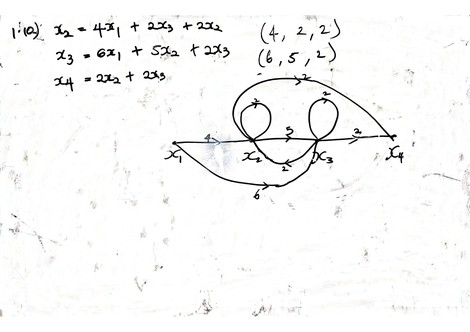 1.(a) x₂ = 4x₁ + 2x₃ + 2x₂ (4, 2, 2)
x₃ = 6x₁ + 5x₂ + 2x₃ (6, 5, 2)
x₄ = 2x₂ + 2x₃
2
2 2
4 5 2
x₁ x₂ x₃ x₄
2
6